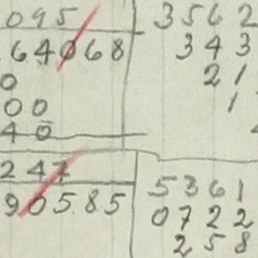 095
64068
0
00
40
247
90585
3562
343
21
1
5361
0722
258